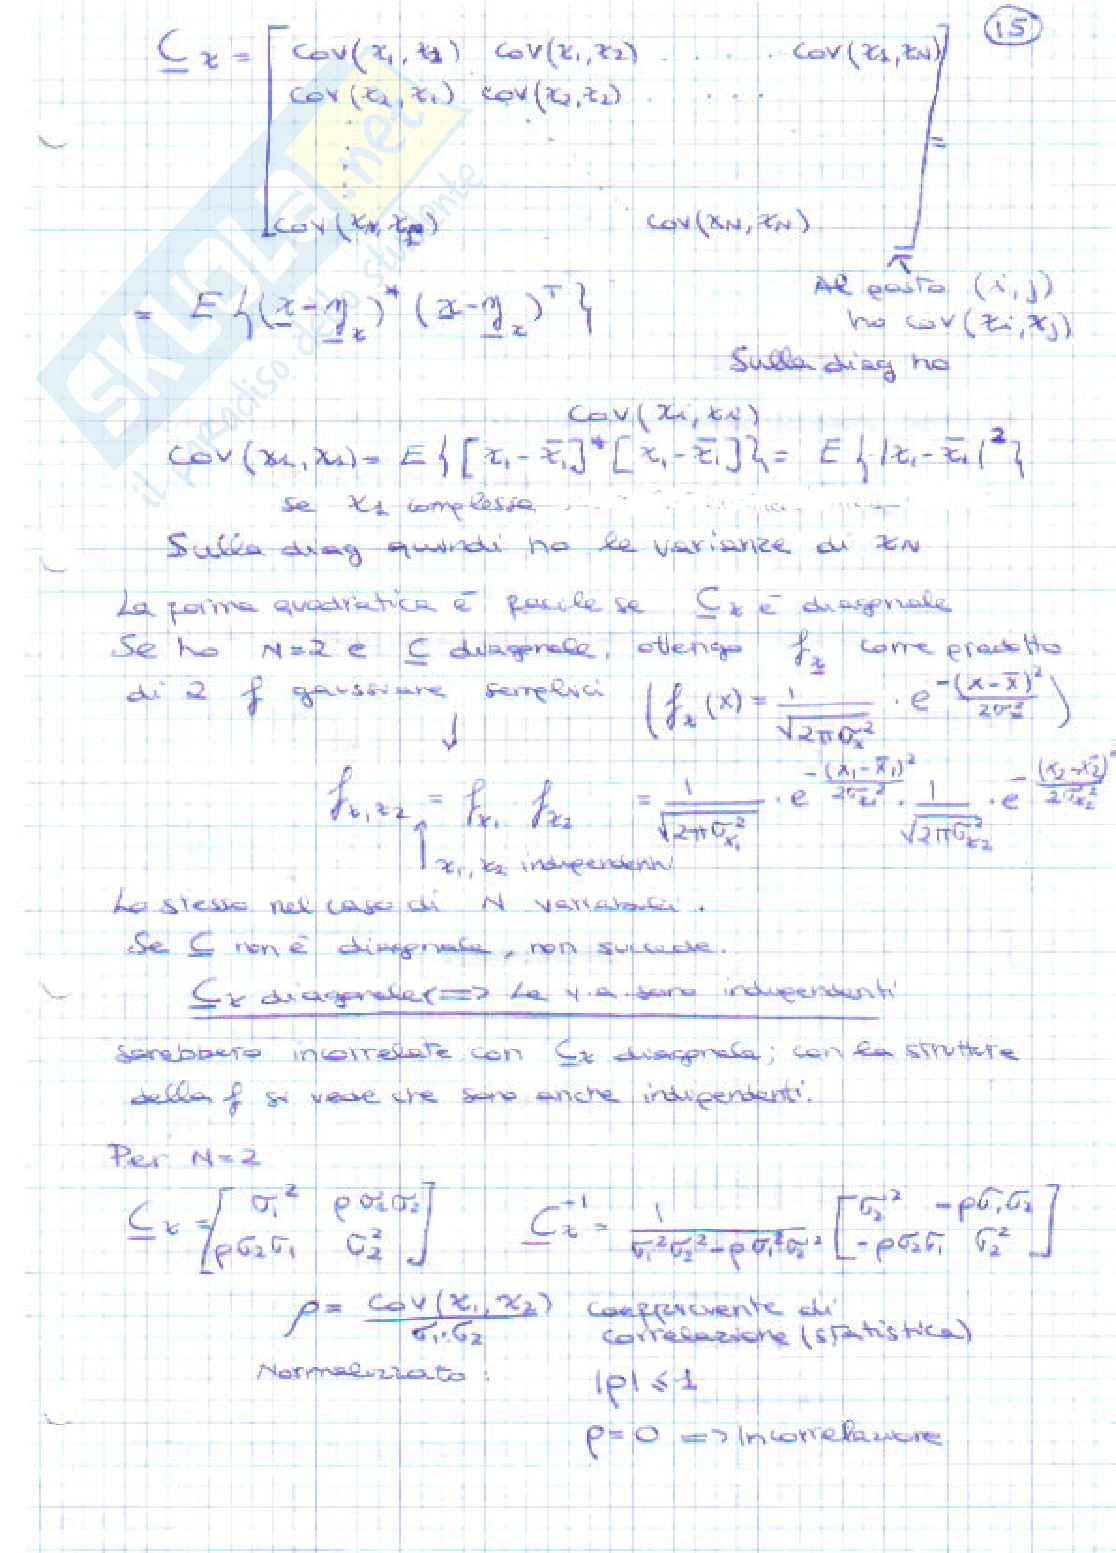 15
C x = [ cov(x1, x1) cov(x1, x2) . . . . cov(x1, xN)
cov(x2, x1) cov(x2, x2) . . . .
cov(xN, x1) cov(xN, xN) ] =
= E {(x - η x)* (x - η x)^T}
Al posto (i, j)
ho cov(xi, xj)
Sulla diag ho
cov(xi, xi)
cov(x1, x1) = E{[x1 - x̄1]* [x1 - x̄1]} = E{|x1 - x̄1|²}
se x1 complessa
Sulla diag quindi ho le varianze di xN
La forma quadratica è facile se C x è diagonale
Se ho N=2 e C diagonale, ottengo f x come prodotto
di 2 f gaussiane semplici (f x (x) = 1/√(2πσx²) · e^(-(x-x̄)²/2σx²))
↓
f x1,x2 = f x1 f x2 = 1/√(2πσx1²) · e^(-(x1-x̄1)²/2σx1²) · 1/√(2πσx2²) · e^(-(x2-x̄2)²/2σx2²)
↑ x1, x2 indipendenti
Lo stesso nel caso di N variabili.
Se C non è diagonale, non succede.
C x diagonale <=> Le v.a. sono indipendenti
sarebbero incorrelate con C x diagonale; con la struttura
della f si vede che sono anche indipendenti.
Per N=2
C x = [σ1² ρσ1σ2 ; ρσ2σ1 σ2²] C x^-1 = 1/(σ1²σ2² - ρσ1²σ2²²) [σ2² -ρσ1σ2 ; -ρσ2σ1 σ2²]
ρ = cov(x1, x2)/(σ1·σ2) coefficiente di
correlazione (statistica)
Normalizzato: |ρ| ≤ 1
ρ = 0 => Incorrelazione
SKUOLA.net
il paradiso dello studente